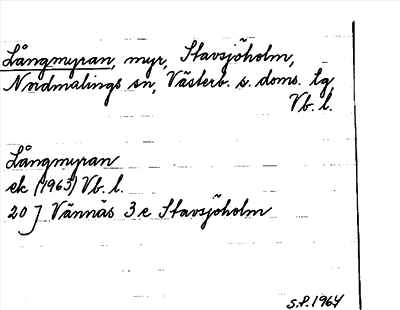 Långmyran, myr, Stavsjöholm,
Nordmalings sn, Västerb. s. doms. lg,
Vb. l.
Långmyran
ek (1963) Vb. l.
20 J Vännäs 3 e Stavsjöholm
S.P. 1964